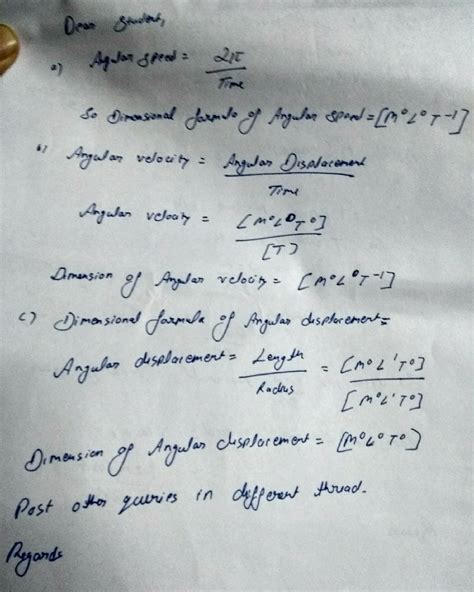 Dear Student,
a) Angular speed = 2π / Time
So Dimensional formula of Angular speed = [M⁰L⁰T⁻¹]
b) Angular velocity = Angular Displacement / Time
Angular velocity = [M⁰L⁰T⁰] / [T]
Dimension of Angular velocity = [M⁰L⁰T⁻¹]
c) Dimensional formula of Angular displacement =
Angular displacement = Length / Radius = [M⁰L¹T⁰] / [M⁰L¹T⁰]
Dimension of Angular displacement = [M⁰L⁰T⁰]
Post other queries in different thread.
Regards